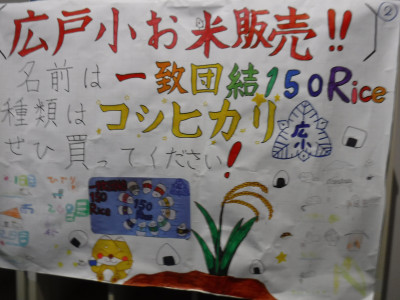 ②
広戸小お米販売!!
名前は一致団結150Rice
種類はコシヒカリ
広小
ぜひ買ってください!
150
Rice
150
Rice